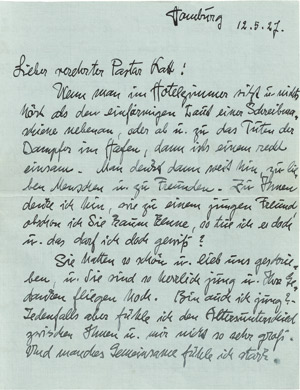 Hamburg
12.5.27.
Lieber verehrter Pastor Katt!
Wenn man im Hotelzimmer sitzt u. nichts
hört als den einförmigen Laut einer Schreibma-
schine nebenan, oder ab u. zu das Tuten der
Dampfer im Hafen, dann ists einem recht
einsam. Man denkt dann weit hin, zu lie-
ben Menschen u. zu Freunden. Zu Ihnen
denke ich hin, wie zu einem jungen Freund
obschon ich Sie kaum kenne, so tue ich es doch
u. das darf ich doch gewiß?
Sie hatten so schön u. lieb uns geschrie-
ben, u. Sie sind so herzlich jung u. Ihre Ge-
danken fliegen hoch. Bin auch ich jung?
Jedenfalls aber fühle ich den Altersunterschied
zwischen Ihnen u. mir nicht so sehr groß.
Und manches Gemeinsame fühle ich stark